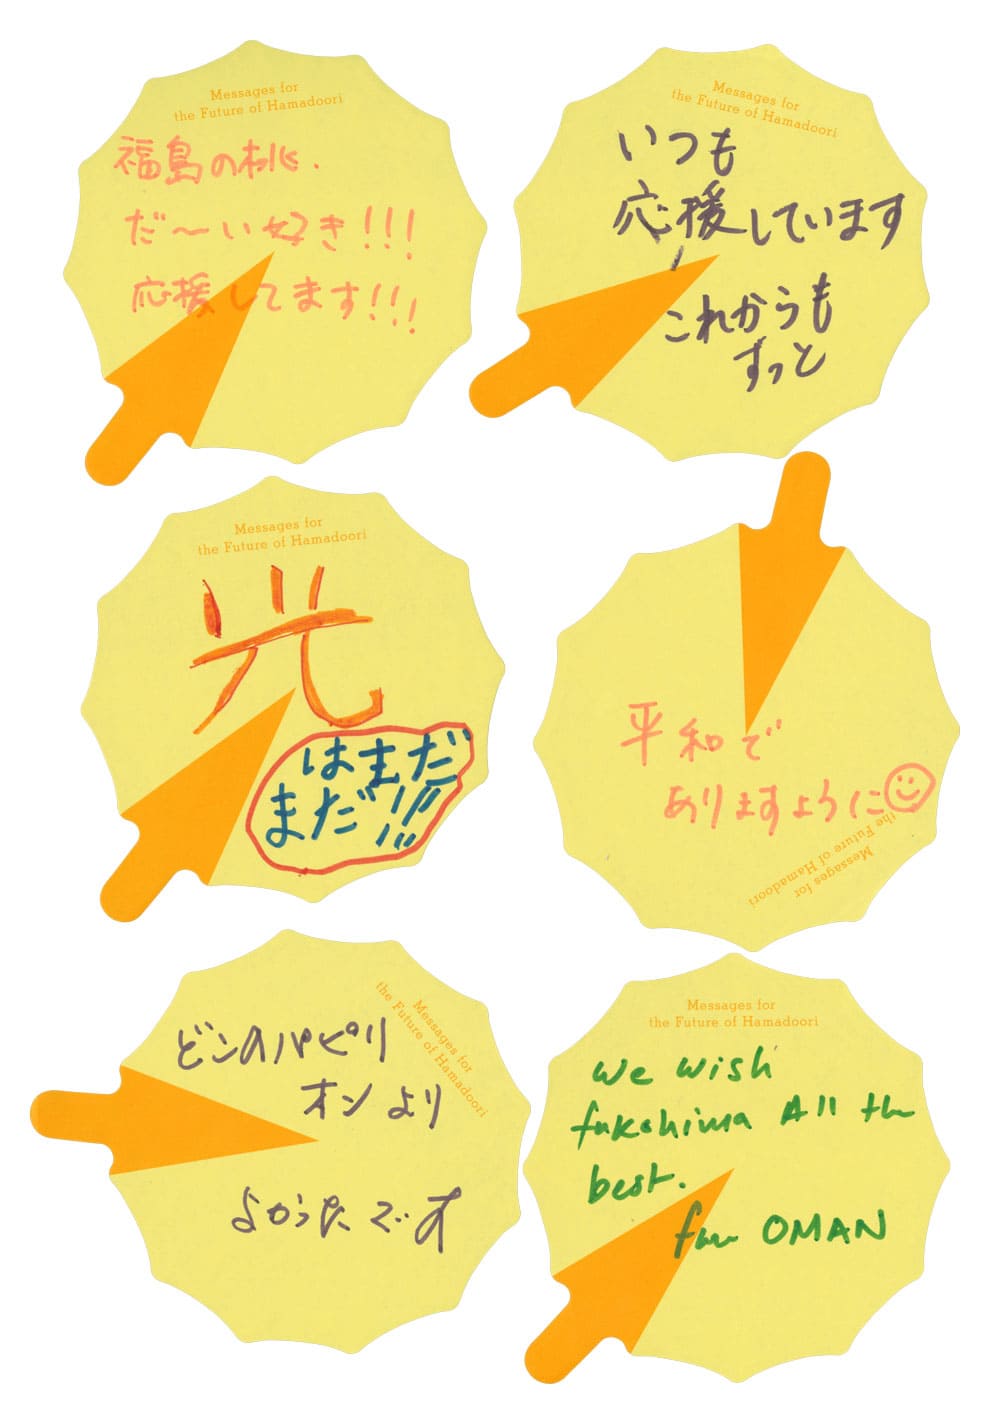 Messages for
the Future of Hamadoori
福島の桃.
だ〜い好き!!!
応援してます!!!
Messages for
the Future of Hamadoori
いつも
応援しています
これからも
ずっと
Messages for
the Future of Hamadoori
光
はまだ
まだ!!!
平和で
ありますように
Messages for
the Future of Hamadoori
Messages for
the Future of Hamadoori
どこのパビリ
オンより
よかったです
Messages for
the Future of Hamadoori
we wish
fukushima All the
best.
from OMAN